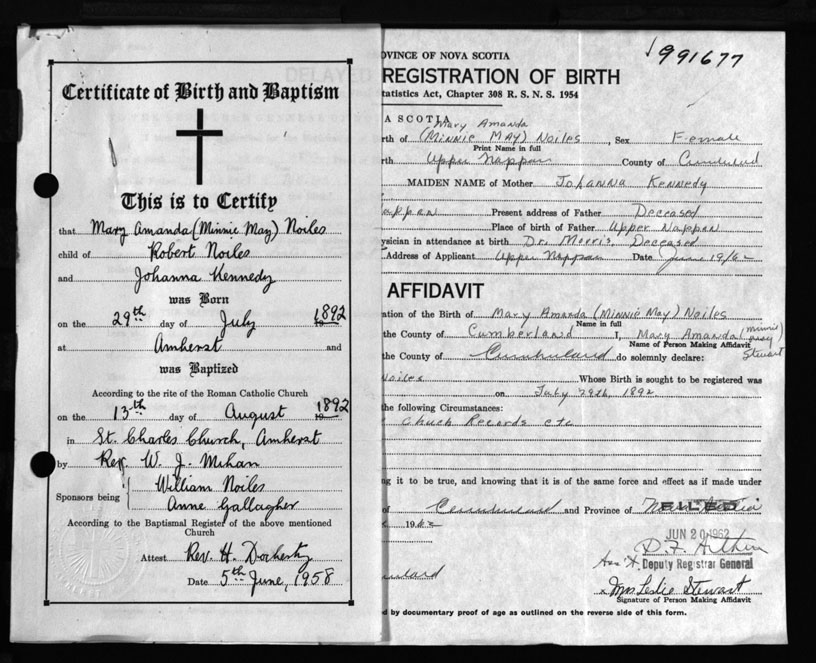 Certificate of Birth and Baptism
This is to Certify
that Mary Amanda (Minnie May) Noiles
child of Robert Noiles
and Johanna Kennedy
was Born
on the 29th day of July 1892
at Amherst and
was Baptized
According to the rite of the Roman Catholic Church
on the 13th day of August 1892
in St. Charles Church, Amherst
by Rev. W. J. Mihan
Sponsors being William Noiles
Anne Gallagher
According to the Baptismal Register of the above mentioned
Church
Attest Rev. H. Docherty
Date 5th June, 1958
1991677
OVINCE OF NOVA SCOTIA
DELAYED REGISTRATION OF BIRTH
tatistics Act, Chapter 308 R. S. N. S. 1954
A SCOTIA
Mary Amanda
rth of (Minnie May) Noiles, Sex Female
Print Name in full
rth Upper Nappan County of
MAIDEN NAME of Mother Johanna Kennedy
appan Present address of Father Deceased
Place of birth of Father Upper Nappan
ysician in attendance at birth Dr. Morris, Deceased
Address of Applicant Upper Nappan Date June 19/62
AFFIDAVIT
ation of the Birth of Mary Amanda (Minnie May) Noiles
Name in full
the County of Cumberland I, Mary Amanda (Minnie May Stewart
Name of Person Making Affidavit
the County of Cumberland do solemnly declare:
Noiles Whose Birth is sought to be registered was
on July 29th, 1892.
the following Circumstances:
Chuch Records etc
ng it to be true, and knowing that it is of the same force and effect as if made under
of Cumberland and Province of
1962
JUN 20 1962
Deputy Registrar General
land
x Mrs Leslie Stewart
Signature of Person Making Affidavit
d by documentary proof of age as outlined on the reverse side of this form.